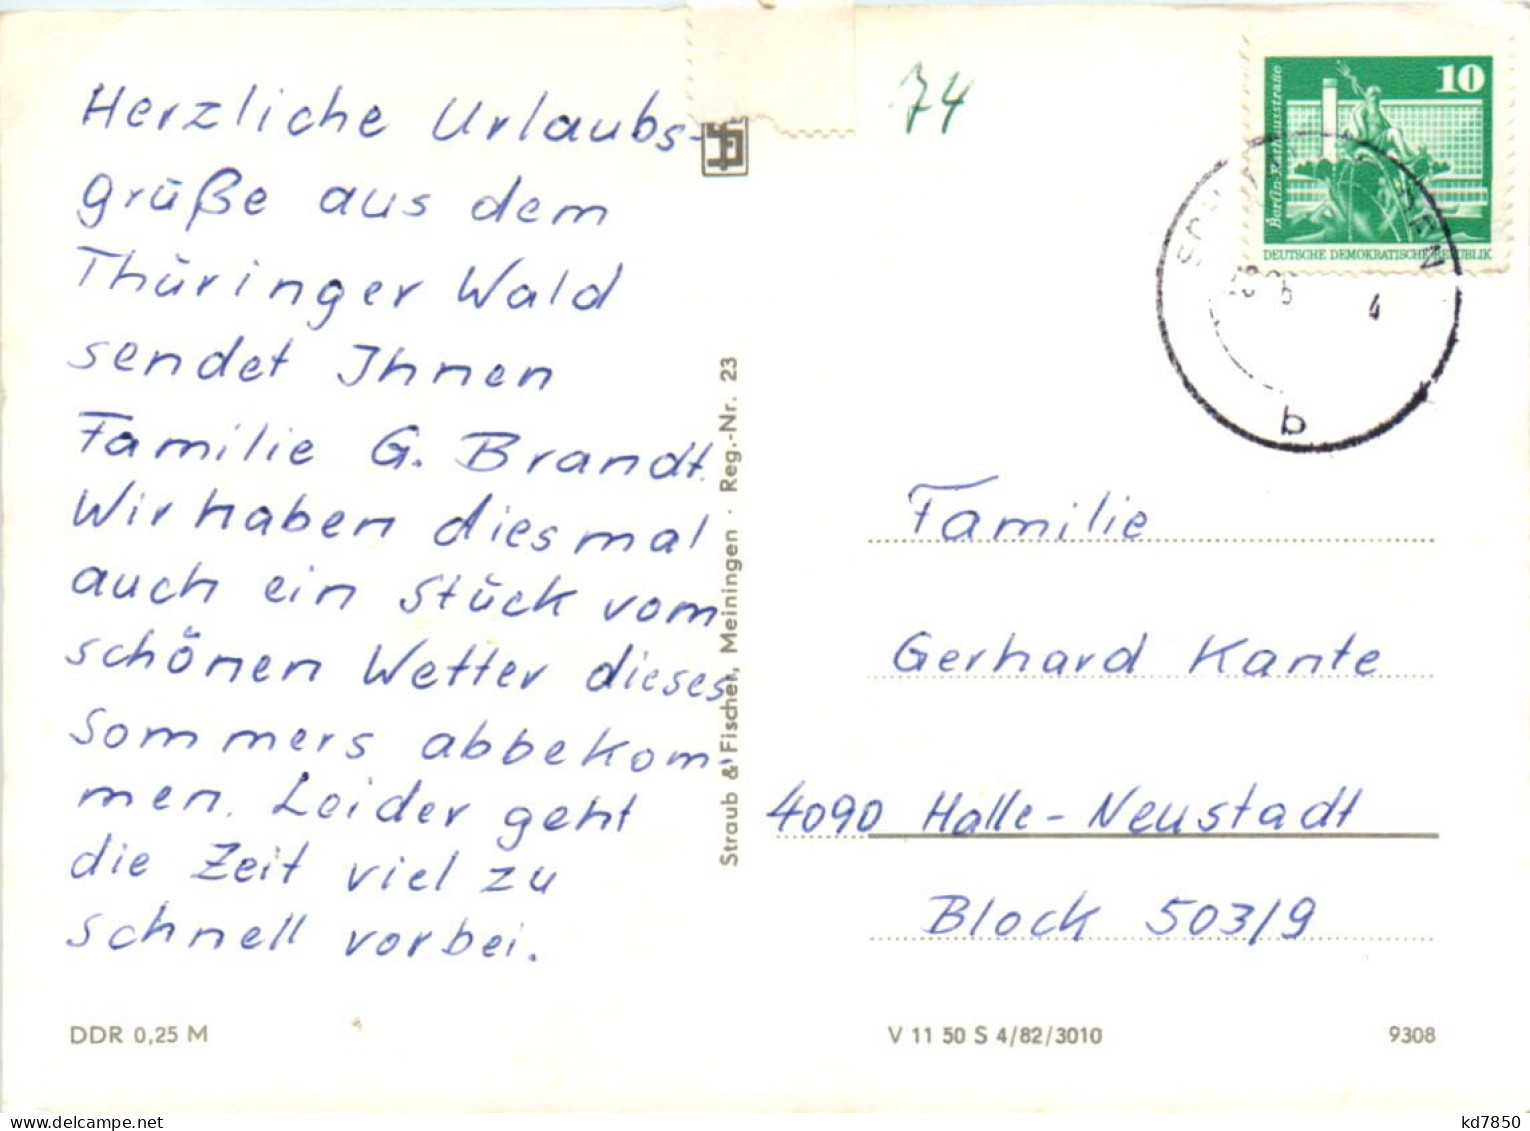 Herzliche Urlaubs-
grüße aus dem
Thüringer Wald
sendet Ihnen
Familie G. Brandt.
Wir haben diesmal
auch ein Stück vom
schönen Wetter dieses
Sommers abbekom-
men. Leider geht
die Zeit viel zu
schnell vorbei.
DDR 0,25 M
Straub & Fischer, Meiningen · Reg.-Nr. 23
74
10
Berlin-Rathausstraße
DEUTSCHE DEMOKRATISCHE REPUBLIK
b
Familie
Gerhard Kante
4090 Halle-Neustadt
Block 503/9
V 11 50 S 4/82/3010
9308
kd7850